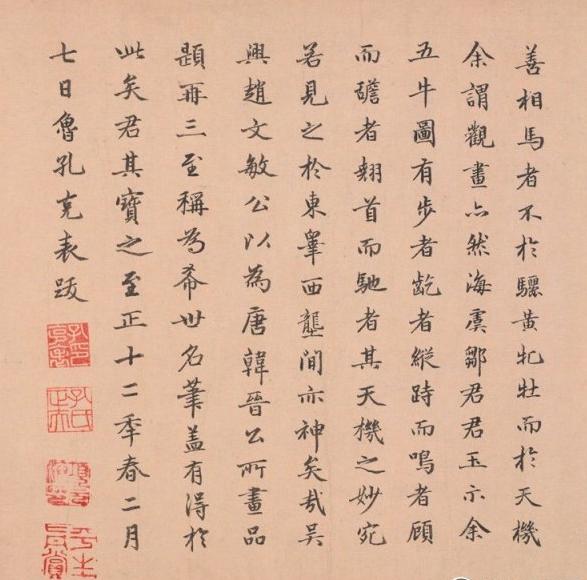 善相馬者不於驪黃牝牡而於天機
余謂觀畫亦然海虞鄒君君玉示余
五牛圖有步者齕者縱跱而鳴者顧
而者翹首而馳者其天機之妙宛
若見之於東皋西壟間亦神矣哉吳
興趙文敏公以為唐韓晉公所畫品
題再三至稱為希世名筆蓋有得於
此矣君其寶之至正十二秊春二月
七日魯孔克表跋
孔氏正夫